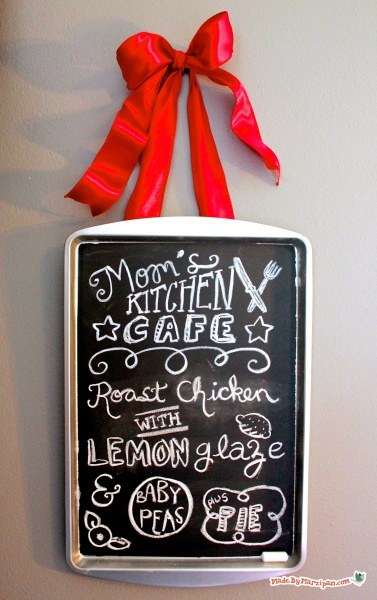 Mom's
KITCHEN
CAFE
Roast Chicken
WITH
LEMON glaze
& BABY PEAS
PLUS PIE
Made By Marzipan.com